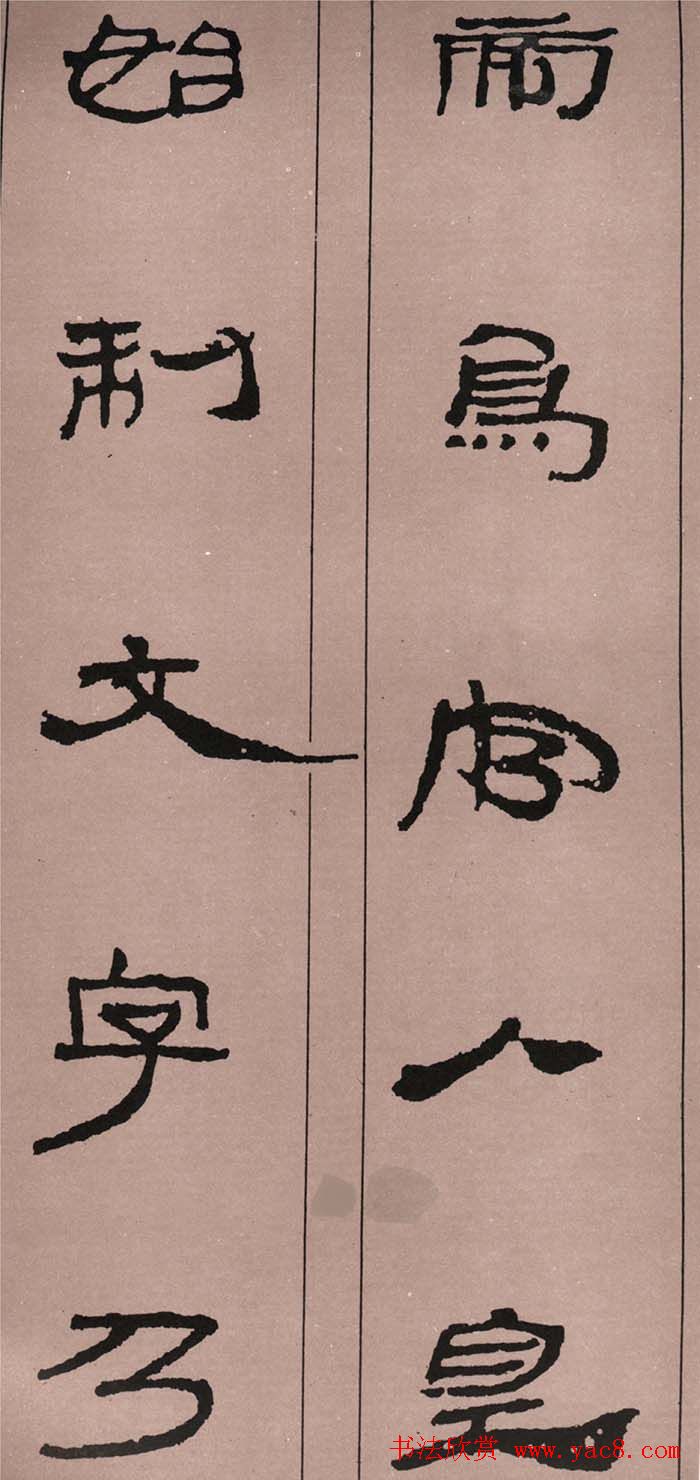 師鳥官人皇
始制文字乃
书法欣赏 www.yac8.com